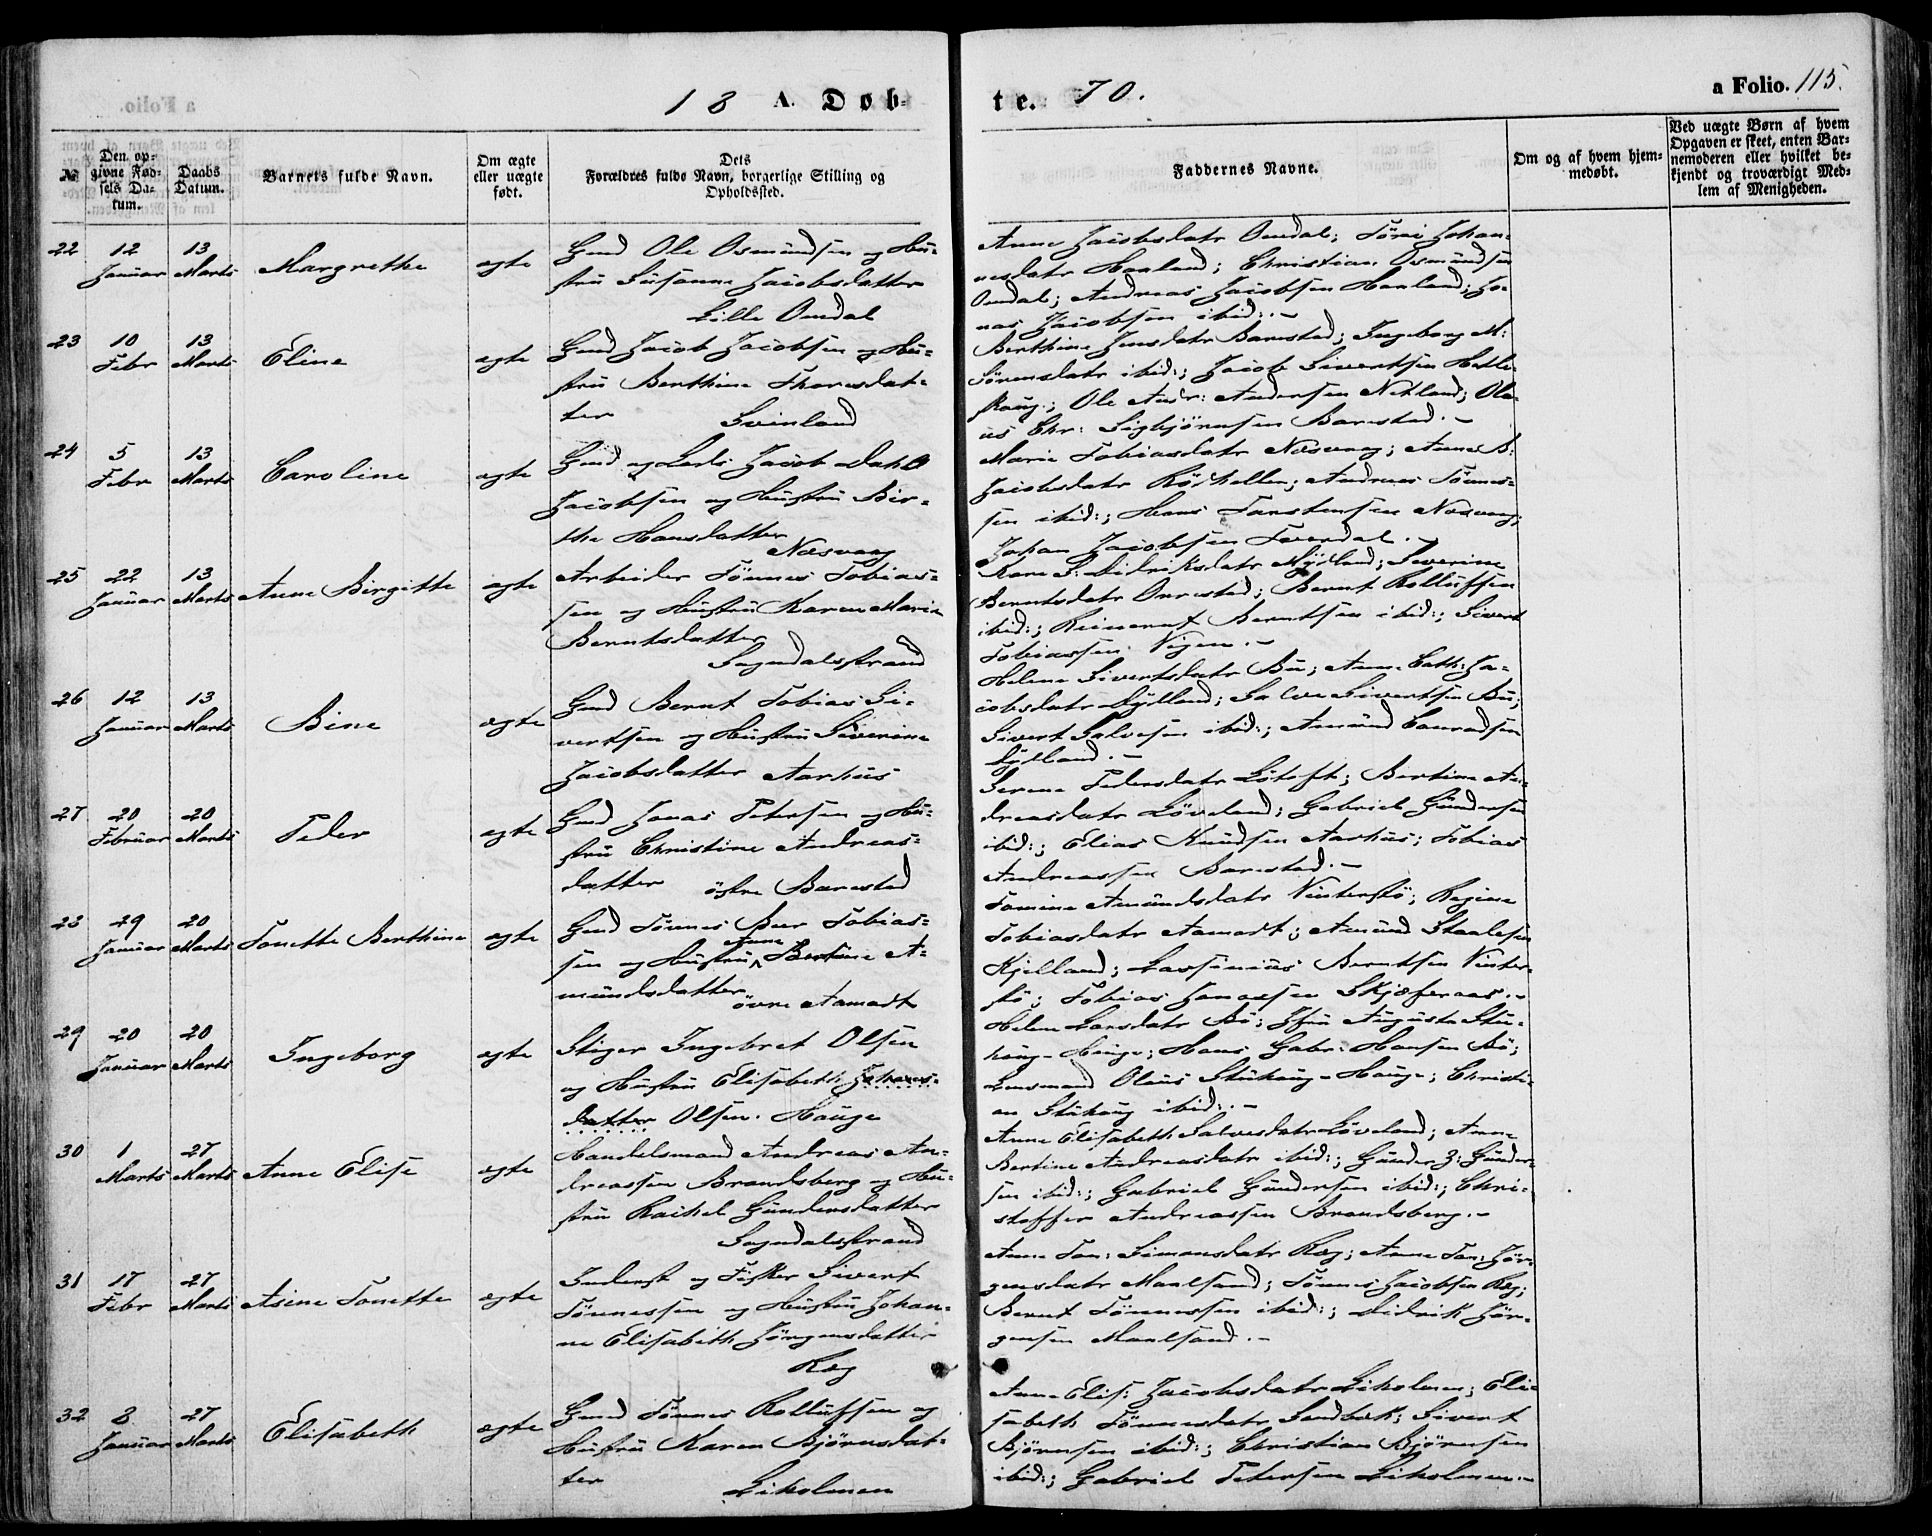 18 A. Døb-
te. 70.
a Folio. 115.
№
Den opgivne Fødsels Datum.
Daabs Datum.
Barnets fulde Navn.
Om ægte eller uægte født.
Dets Forældres fulde Navn, borgerlige Stilling og Opholdssted.
Faddernes Navne.
Om og af hvem hjemmedøbt.
Ved uægte Børn af hvem Opgaven er skeet, enten Barnemoderen eller hvilket bekjendt og troværdigt Medlem af Menigheden.
22 12 Januar 13 Marts Margrethe ægte
Gmd Ole Osmundsen og Hu-
stru Susanne Jacobsdatter
Lille Omdal
Anne Jacobsdatr Omdal; Töri Johan-
nesdatr Haaland; Christian Osmundsen
Omdal; Andreas Jacobsen Haaland; Jo-
nas Jacobsen ibid:.-
23 10 Febr 13 Marts Eline ægte
Gmd Jacob Jacobsen og Hu-
stru Berthine Thoresdat-
ter
Svinland
Berthine Jensdatr Barestad; Ingeborg M:
Sörensdatr ibid:; Jacob Sivertsen Hetle-
skaug; Ole Andr: Andersen Netland; Ola-
us Chr: Sigbjörnsen Barestad.-
24 5 Febr 13 Marts Caroline ægte
Gmd og Lods Jacob Dahl
Jacobsen og Hustru Bir-
the Hansdatter
Nesvaag
Marie Tobiasdatr Nesvaag; Anne B:
Jacobsdatr Röskellen; Andreas Tönnes-
sen ibid:; Hans Torstensen Nesvaag;
Johan Jacobsen
25 22 Januar 13 Marts Anne Birgitte ægte
Arbeider Tönnes Tobias-
sen og Hustru Karen Marie
Berntsdatter
Sogndalsstrand
Kare S: Didriksdatr Mydland; Severine
Berntsdatr Orrestad; Bernt Rolluffsen
ibid:; Reinert Berntsen ibid:; Sivert
Tobiassen
26 12 Januar 13 Marts Bine ægte
Gmd Bernt Tobias Si-
vertsen og Hustru Siverine
Jacobsdatter Aarhus
Helene Sivertsdatr Bu; Anne Cath: Ja-
cobsdatr Gylland; Salve Sivertsen Bu;
Sivert Salvesen ibid:; Amund Conradsen
Gylland.-
27 20 Februar 20 Marts Peder ægte
Gmd Jonas Petersen og Hu-
stru Christine Andreas-
datter östre Barestad
Serene Pedersdatr Lötoft; Bertine An-
dreasdatr Löveland; Gabriel Gundersen
ibid:; Elias Knudsen Aarhus; Tobias
Andreassen Barestad.-
28 29 Januar 20 Marts Tonette Berthine ægte
Gmd Tönnes Peer Tobias-
sen og Hustru Anne Bertine A-
mundsdatter
övre Aamodt
Tomine Amundsdatr Vinterstö; Regine
Tobiasdatr Aamodt; Amund Staalesen
Kjelland; Lassenius Berntsen Vinter-
stö; Tobias Jonassen Skjeferaas.-
29 20 Januar 20 Marts Ingeborg ægte
Stiger Ingebret Olsen
og Hustru Elisabeth Johans-
datter Olsen. Hauge
Helene Larsdatr Bö; Jfru Augusta Stu-
haug-Hauge; Hans Gabr: Hansen Bö;
Lensmand Olaus Stuhaug-Hauge; Christi-
an Stuhaug ibid:.-
30 1 Marts 27 Marts Anne Elise ægte
Handelsmand Andreas An-
dreassen Brandsberg og Hu-
stru Rachel Gundersdatter
Sogndalsstrand
Anne Elisabeth Salvesdatr Löveland; Anne
Bertine Andreasdatr ibid:; Gunder Z: Gunder-
sen ibid:; Gabriel Gundersen ibid:; Chri-
stoffer Andreassen Brandsberg.-
31 17 Febr 27 Marts Asine Tonette ægte
Inderst og Fisker Sivert
Tönnessen og Hustru Johan-
ne Elisabeth Jörgensdatter
Ræg
Anne Ton: Simonsdatr Ræg; Anne Ton: Jör-
gensdatr Maalsund; Tönnes Jacobsen Ræg;
Bernt Tönnessen ibid:; Didrik Jör-
gensen Maalsund.-
32 8 Januar 27 Marts Elisabeth ægte
Gmd Tönnes Rolluffsen og
Hustru Karen Björnsdat-
ter
Liholmen
Anne Elis: Jacobsdatr Liholmen; Eli-
sabeth Tönnesdatr Sandbæk; Sivert
Björnsen ibid:; Christian Björnsen
ibid:; Gabriel Petersen Liholmen.-